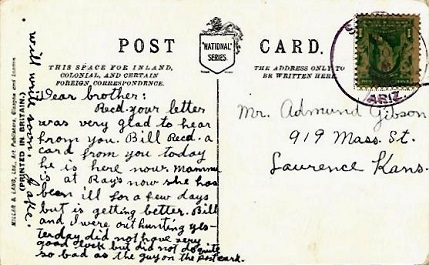 POST CARD.
"NATIONAL"
SERIES.
THIS SPACE FOR INLAND,
COLONIAL, AND CERTAIN
FOREIGN CORRESPONDENCE.
THE ADDRESS ONLY TO
BE WRITTEN HERE
ARIZ.
1
MILLAR & LANG, Ltd., Art Publishers, Glasgow and London
(PRINTED IN BRITAIN.)
Dear brother:
Recd. your letter
was very glad to hear
from you. Bill Recd. a
card from you today
he is here now. Mamma
is at Ray's now she has
been ill for a few days
but is getting better. Bill
and I were out hunting yes-
terday did not have very
good cluck but did not do quite
so bad as the guy on the post card.
will write soon. Jake.
Mr. Admund Gibson
919 Mass. St.
Laurence Kans.